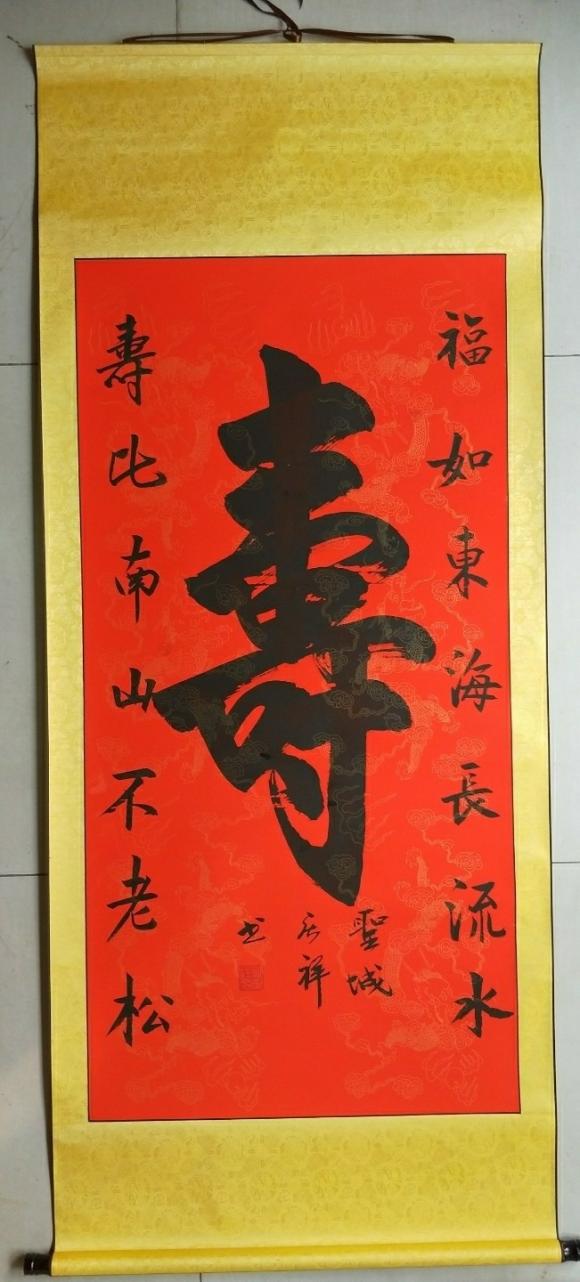 福如東海長流水
壽
壽比南山不老松
聖城
祥
书